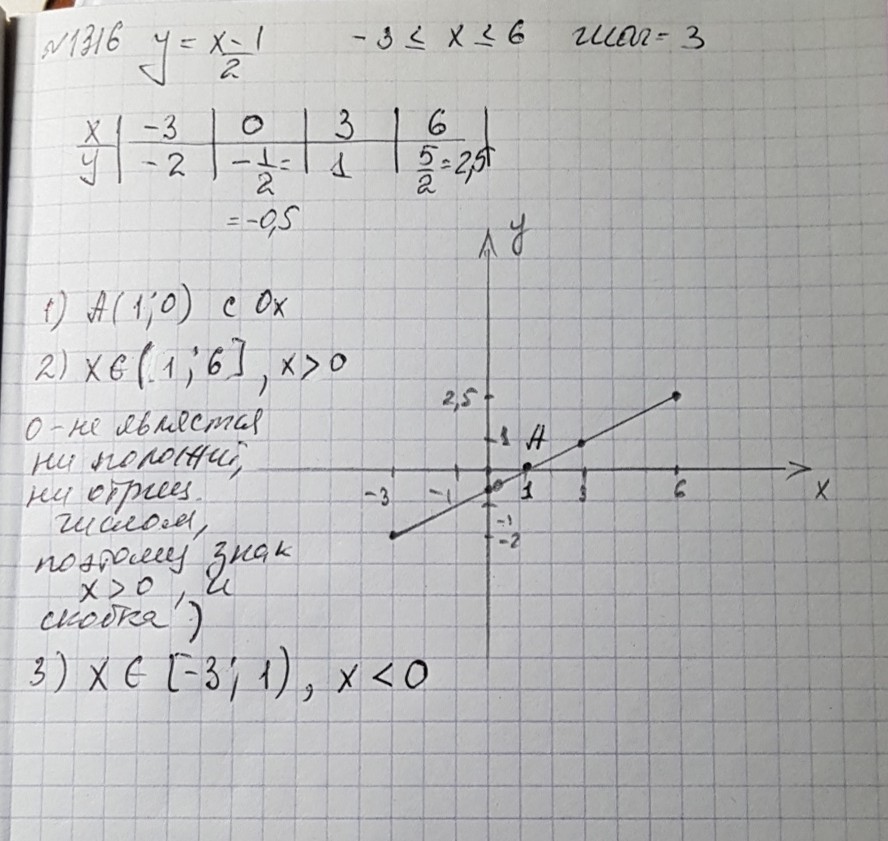 №1316 y = x-1/2 -3 ≤ x ≤ 6 шаг = 3
x | -3 | 0 | 3 | 6 |
y | -2 | -1/2 = | 1 | 5/2 = 2,5
= -0,5
y
1) A(1;0) с Ox
2) x ∈ (1; 6], x > 0
0 - не является
ни полож,
ни отриц.
числом,
поэтому знак
x > 0, и
скобка )
2,5
1 A
-3 -1 0 1 3 6 x
-1
-2
3) x ∈ [-3; 1), x < 0